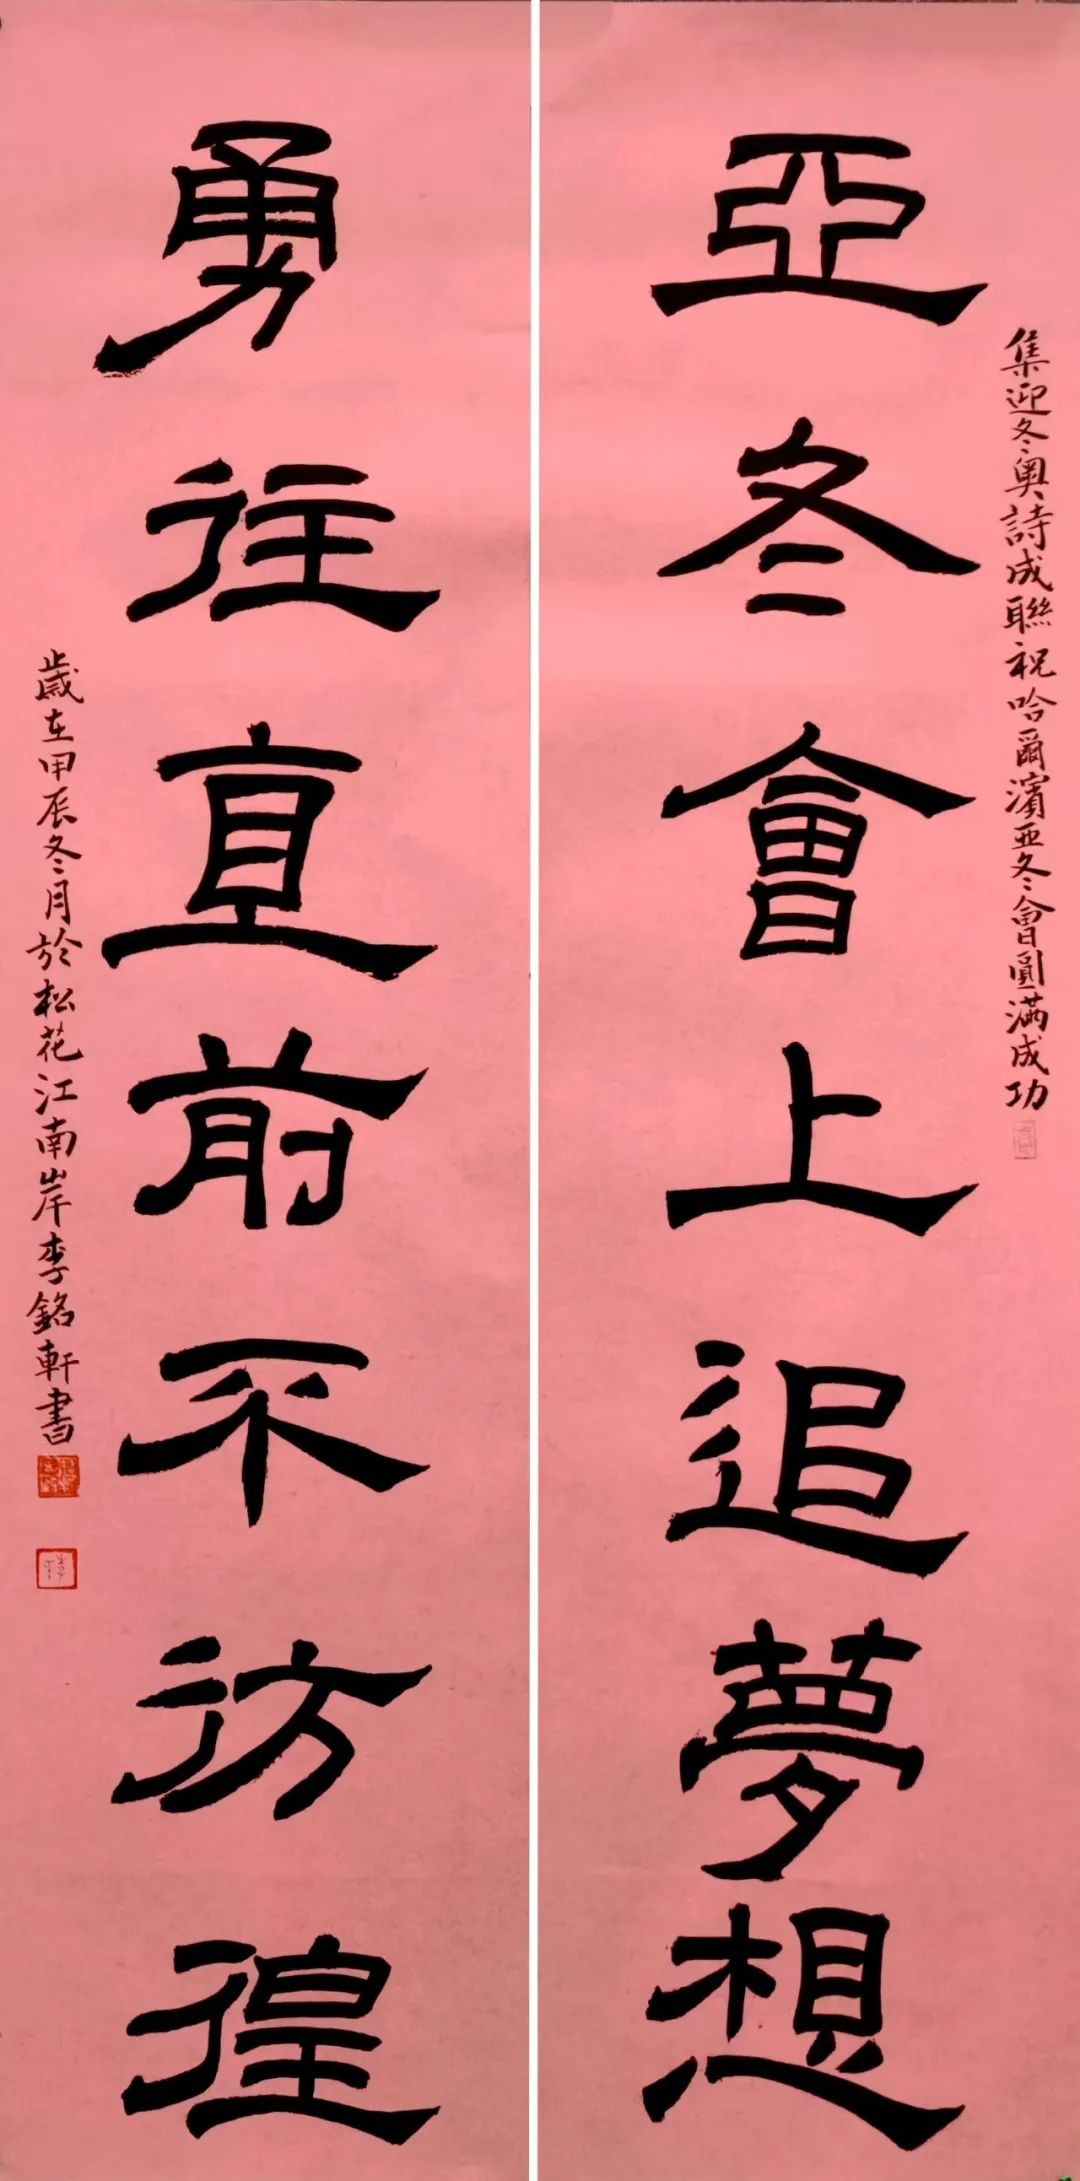 集迎冬奧詩成聯祝哈爾濱亞冬會圓滿成功
亞冬會上追夢想
勇往直前不彷徨
歲在甲辰冬月於松花江南岸李銘軒書